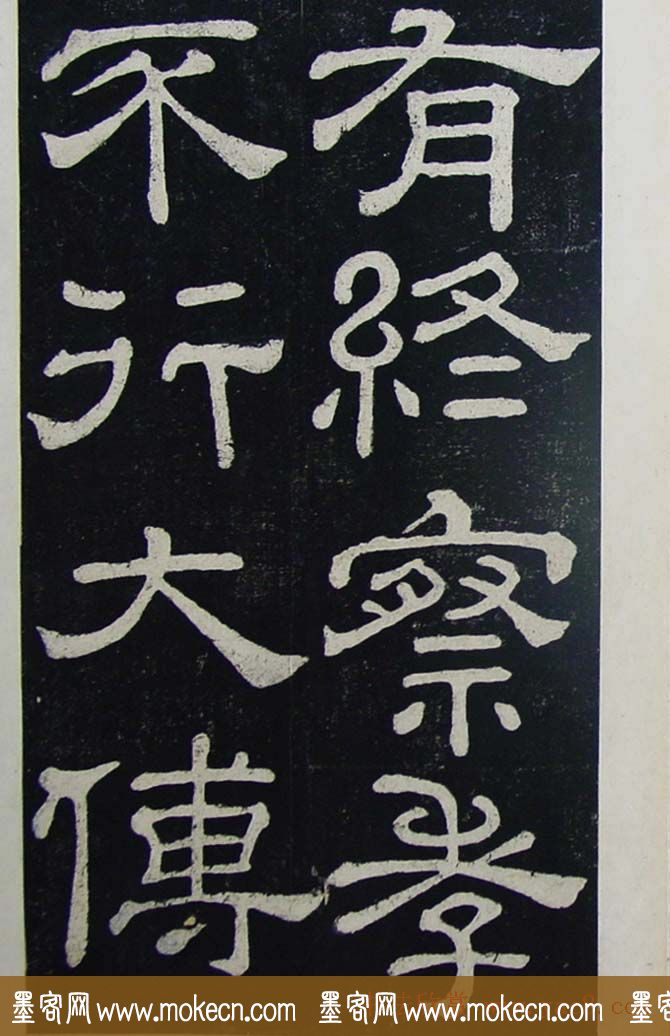 有終察孝
不行大傅
墨客网 www.mokecn.com 墨客网 www.mokecn.com 墨客